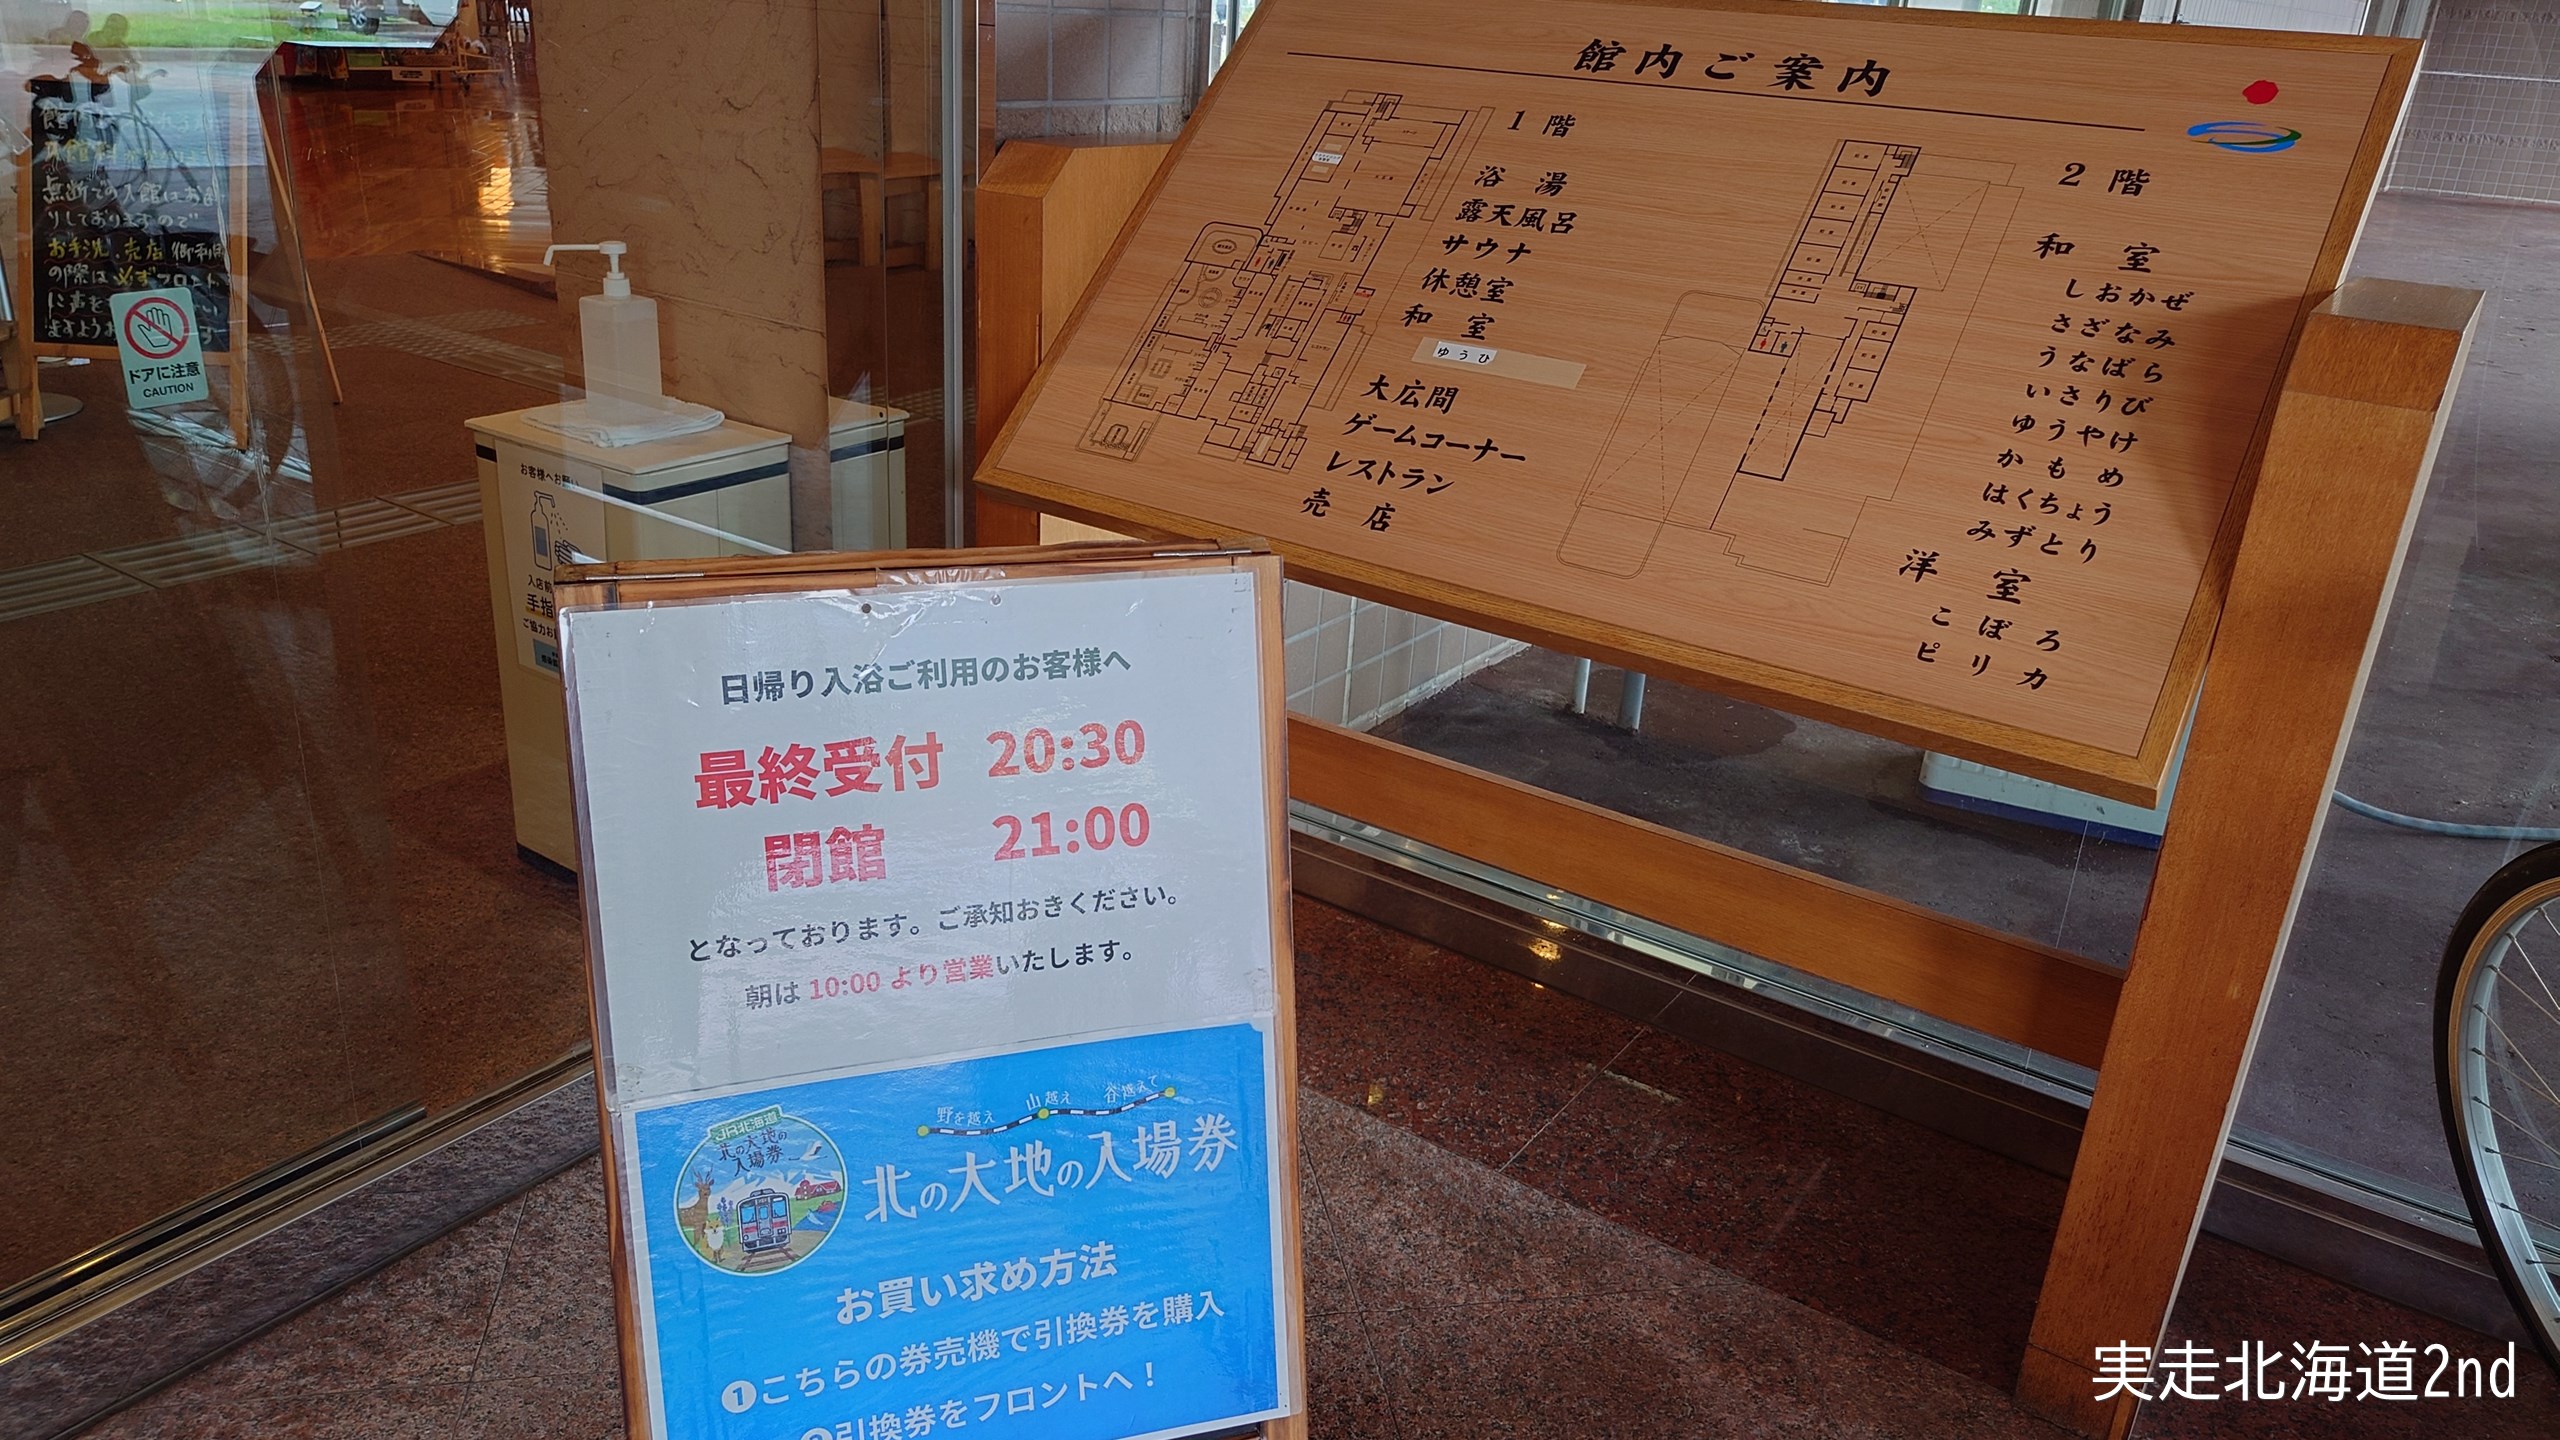 館内ご案内
1階
浴湯
露天風呂
サウナ
休憩室
和室
ゆうひ
大広間
ゲームコーナー
レストラン
売店
2階
和室
しおかぜ
さざなみ
うなばら
いさりび
ゆうやけ
かもめ
はくちょう
みずとり
洋室
こぼろ
ピリカ
無断での入館はお断
りしておりますので
お手洗、売店御利用
の際は必ずフロント
ドアに注意
CAUTION
お客様へお願い
入店前
手指
日帰り入浴ご利用のお客様へ
最終受付 20:30
閉館 21:00
となっております。ご承知おきください。
朝は 10:00 より営業いたします。
野を越え 山越え 谷越えて
JR北海道
北の大地の
入場券
北の大地の入場券
お買い求め方法
❶こちらの券売機で引換券を購入
❷引換券をフロントへ！
実走北海道2nd